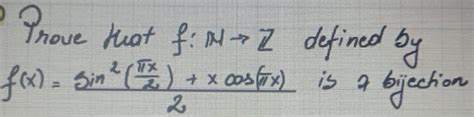 Prove that f: ℕ → ℤ defined by
f(x) = sin²(πx/2) + x cos(πx) is a bijection
2